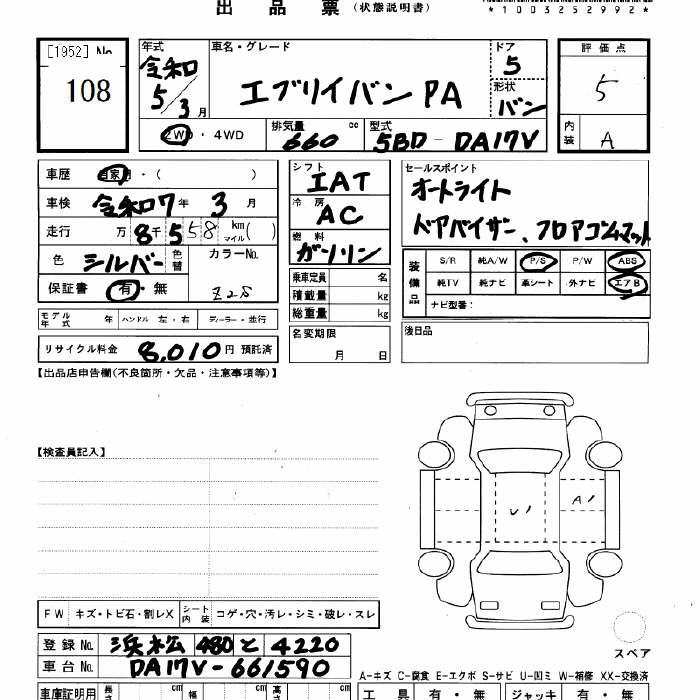 出品票（状態説明書）
*1003252992*
[1952] No 108
年式 令和5/3月
車名・グレード エブリイバン PA
ドア 5
形状 バン
評価点 5
内装 A
2WD・4WD
排気量 660 cc
型式 5BD-DA17V
車歴 自家用・（ ）
車検 令和7年3月
走行 万8千558 km マイル( )
色 シルバー 色替
カラーNo. Z2S
保証書 有・無
シフト IAT
冷房 AC
燃料 ガソリン
乗車定員 名
積載量 kg
総重量 kg
セールスポイント
オートライト
ドアバイザー、フロアゴムマット
装備品 S/R 純A/W P/S P/W ABS
純TV 純ナビ 革シート 外ナビ エアB
ナビ型番：
モデル年式 年 ハンドル 左・右 ディーラー・並行
名変期限 月 日
後日品
リサイクル料金 8,010円 預託済
【出品店申告欄(不良箇所・欠品・注意事項等)】
【検査員記入】
レ1
A1
スペア
FW キズ・トビ石・割レX シート内装 コゲ・穴・汚レ・シミ・破レ・スレ
登録No. 浜松 480 と 4220
車台No. DA17V-661590
A-キズ C-腐食 E-エクボ S-サビ U-凹ミ W-補修 XX-交換済
車庫証明用 長さ cm 幅 cm 高さ cm
工具 有・無 ジャッキ 有・無